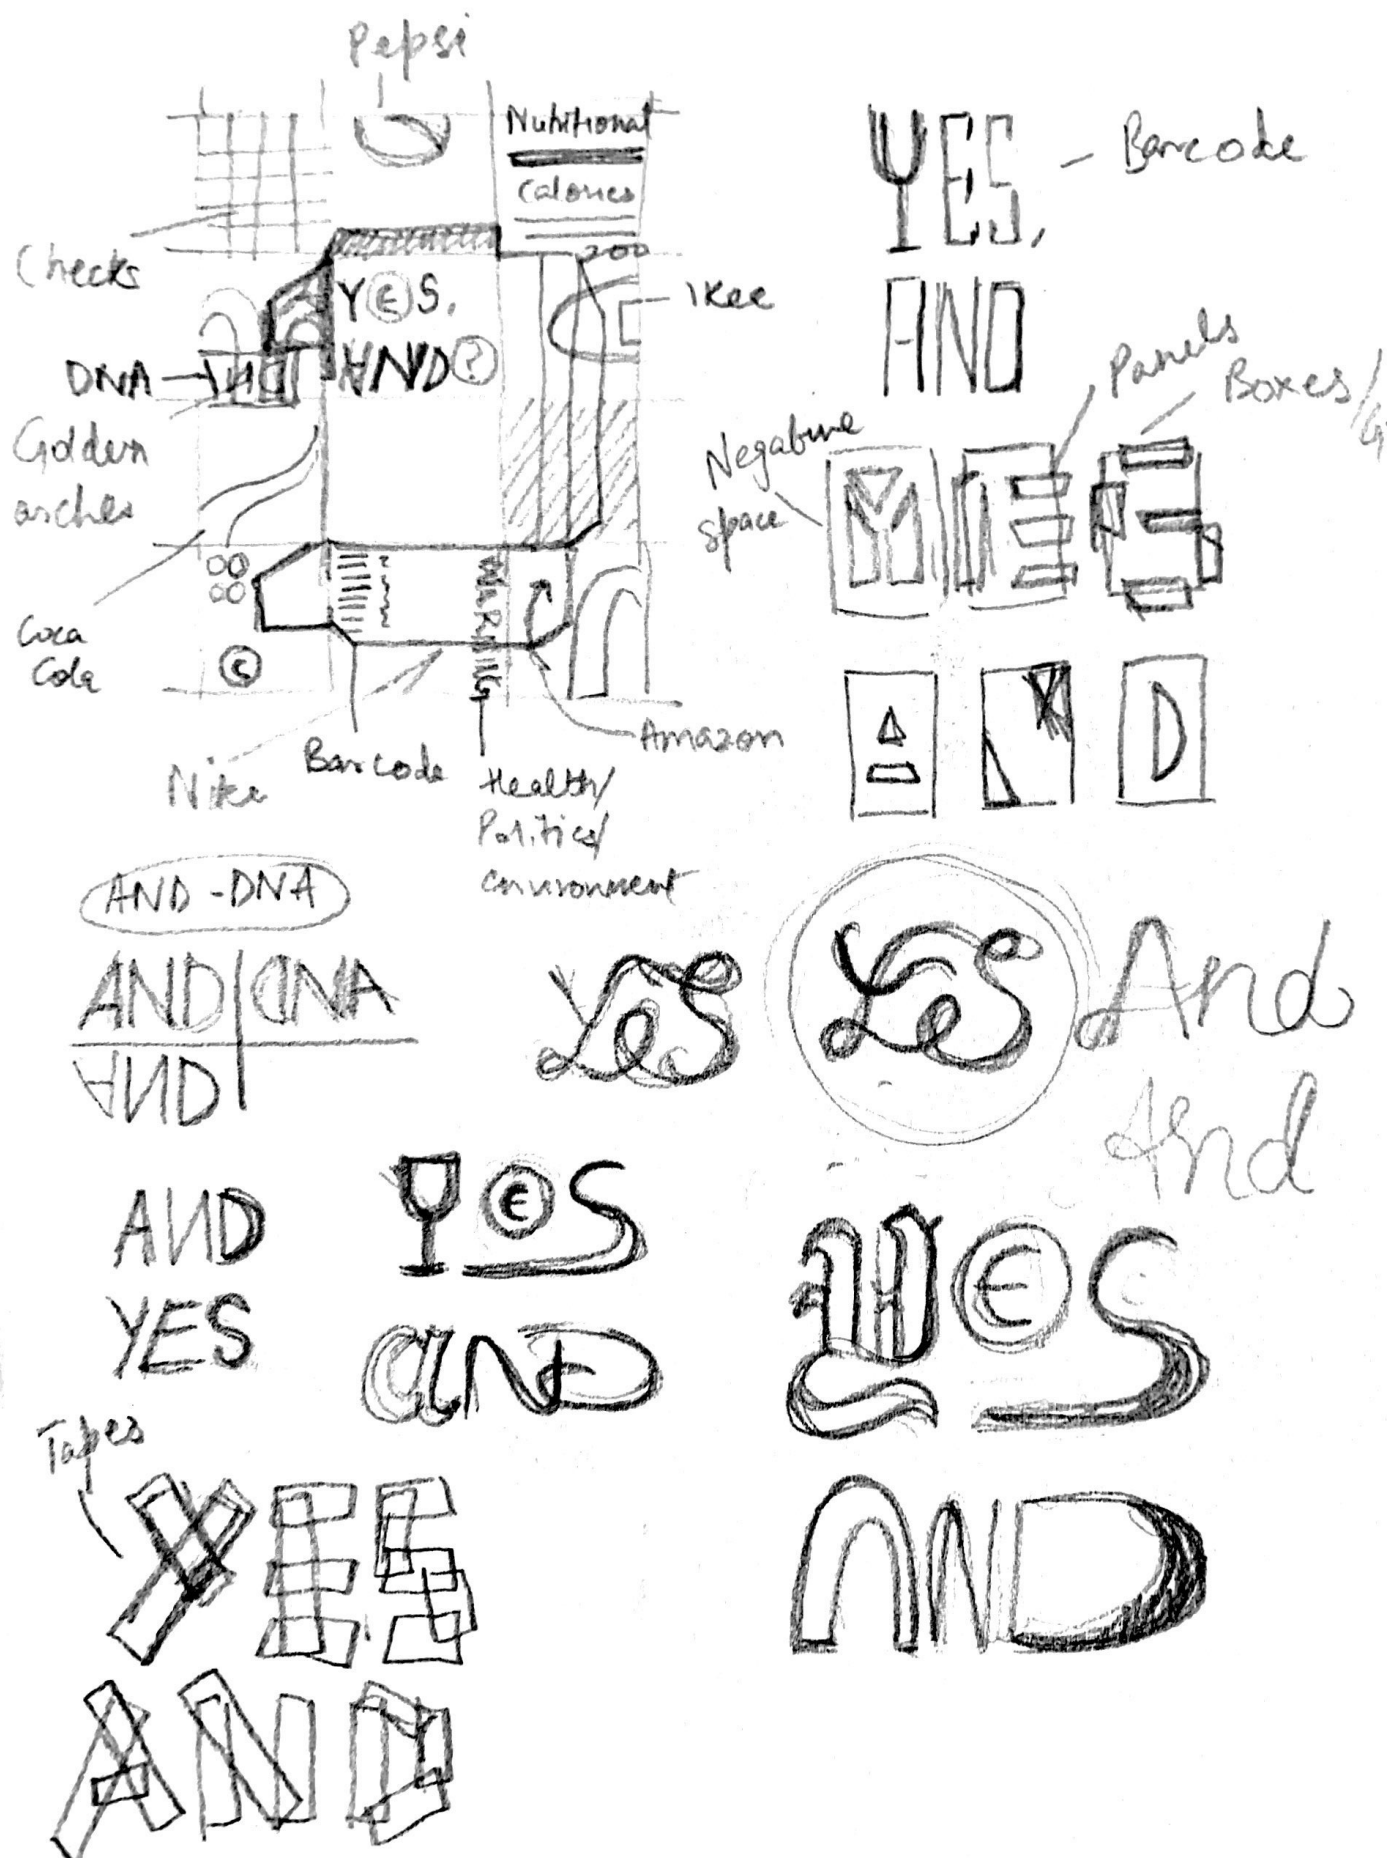 Pepsi
Nutritional
Calories
200
Checks
YES.
AND?
Ikee
DNA
AND
Golden
arches
Coca
Cola
©
WARNING
Nike
Barcode
Amazon
Health/
Politics/
environment
YES,
Barcode
AND
Panels
Boxes/
Negative
space
YES
AND
AND - DNA
AND
DNA
AND
YeS
YeS
And
And
AND
YES
YES
aND
YES
AND
Tapes
YES
AND